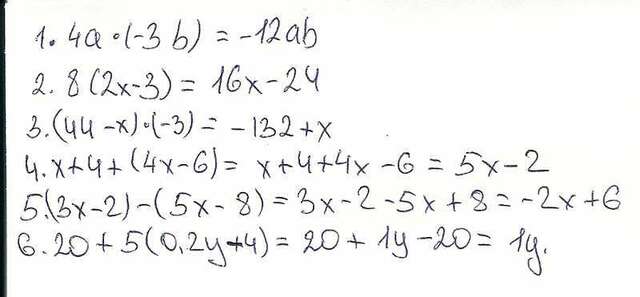 1. 4a·(-3b) = -12ab
2. 8(2x-3) = 16x-24
3. (44-x)·(-3) = -132+x
4. x+4+(4x-6) = x+4+4x-6 = 5x-2
5.(3x-2)-(5x-8) = 3x-2-5x+8 = -2x+6
6. 20+5(0,2y+4) = 20+1y-20 = 1y.